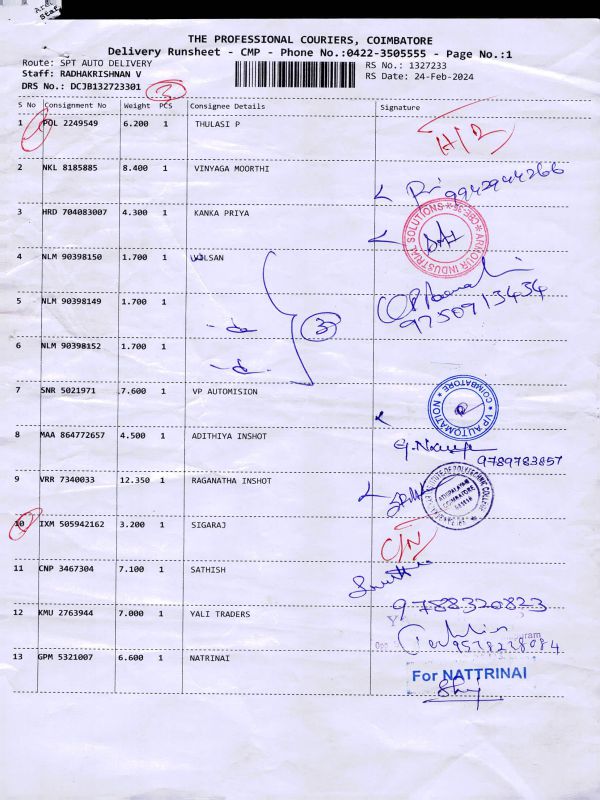 THE PROFESSIONAL COURIERS, COIMBATORE
Delivery Runsheet - CMP - Phone No.:0422-3505555 - Page No.:1
Route: SPT AUTO DELIVERY
RS No.: 1327233
Staff: RADHAKRISHNAN V
RS Date: 24-Feb-2024
DRS No.: DCJB132723301
3
S No Consignment No Weight PCS Consignee Details Signature
1 POL 2249549 6.200 1 THULASI P
2 NKL 8185885 8.400 1 VINYAGA MOORTHI
9942944266
3 HRD 704083007 4.300 1 KANKA PRIYA
ARMOUR INDUSTRIAL SOLUTIONS
4 NLM 90398150 1.700 1 WOLSAN
5 NLM 90398149 1.700 1
9750713434
- do
3
6 NLM 90398152 1.700 1
- do
7 SNR 5021971 7.600 1 VP AUTOMISION
VP AUTOMATION COIMBATORE
8 MAA 864772657 4.500 1 ADITHIYA INSHOT
9789783857
9 VRR 7340033 12.350 1 RAGANATHA INSHOT
10 IXM 505942162 3.200 1 SIGARAJ
C/N
11 CNP 3467304 7.100 1 SATHISH
9788320823
12 KMU 2763944 7.000 1 YALI TRADERS
9538238084
13 GPM 5321007 6.600 1 NATRINAI
For NATTRINAI